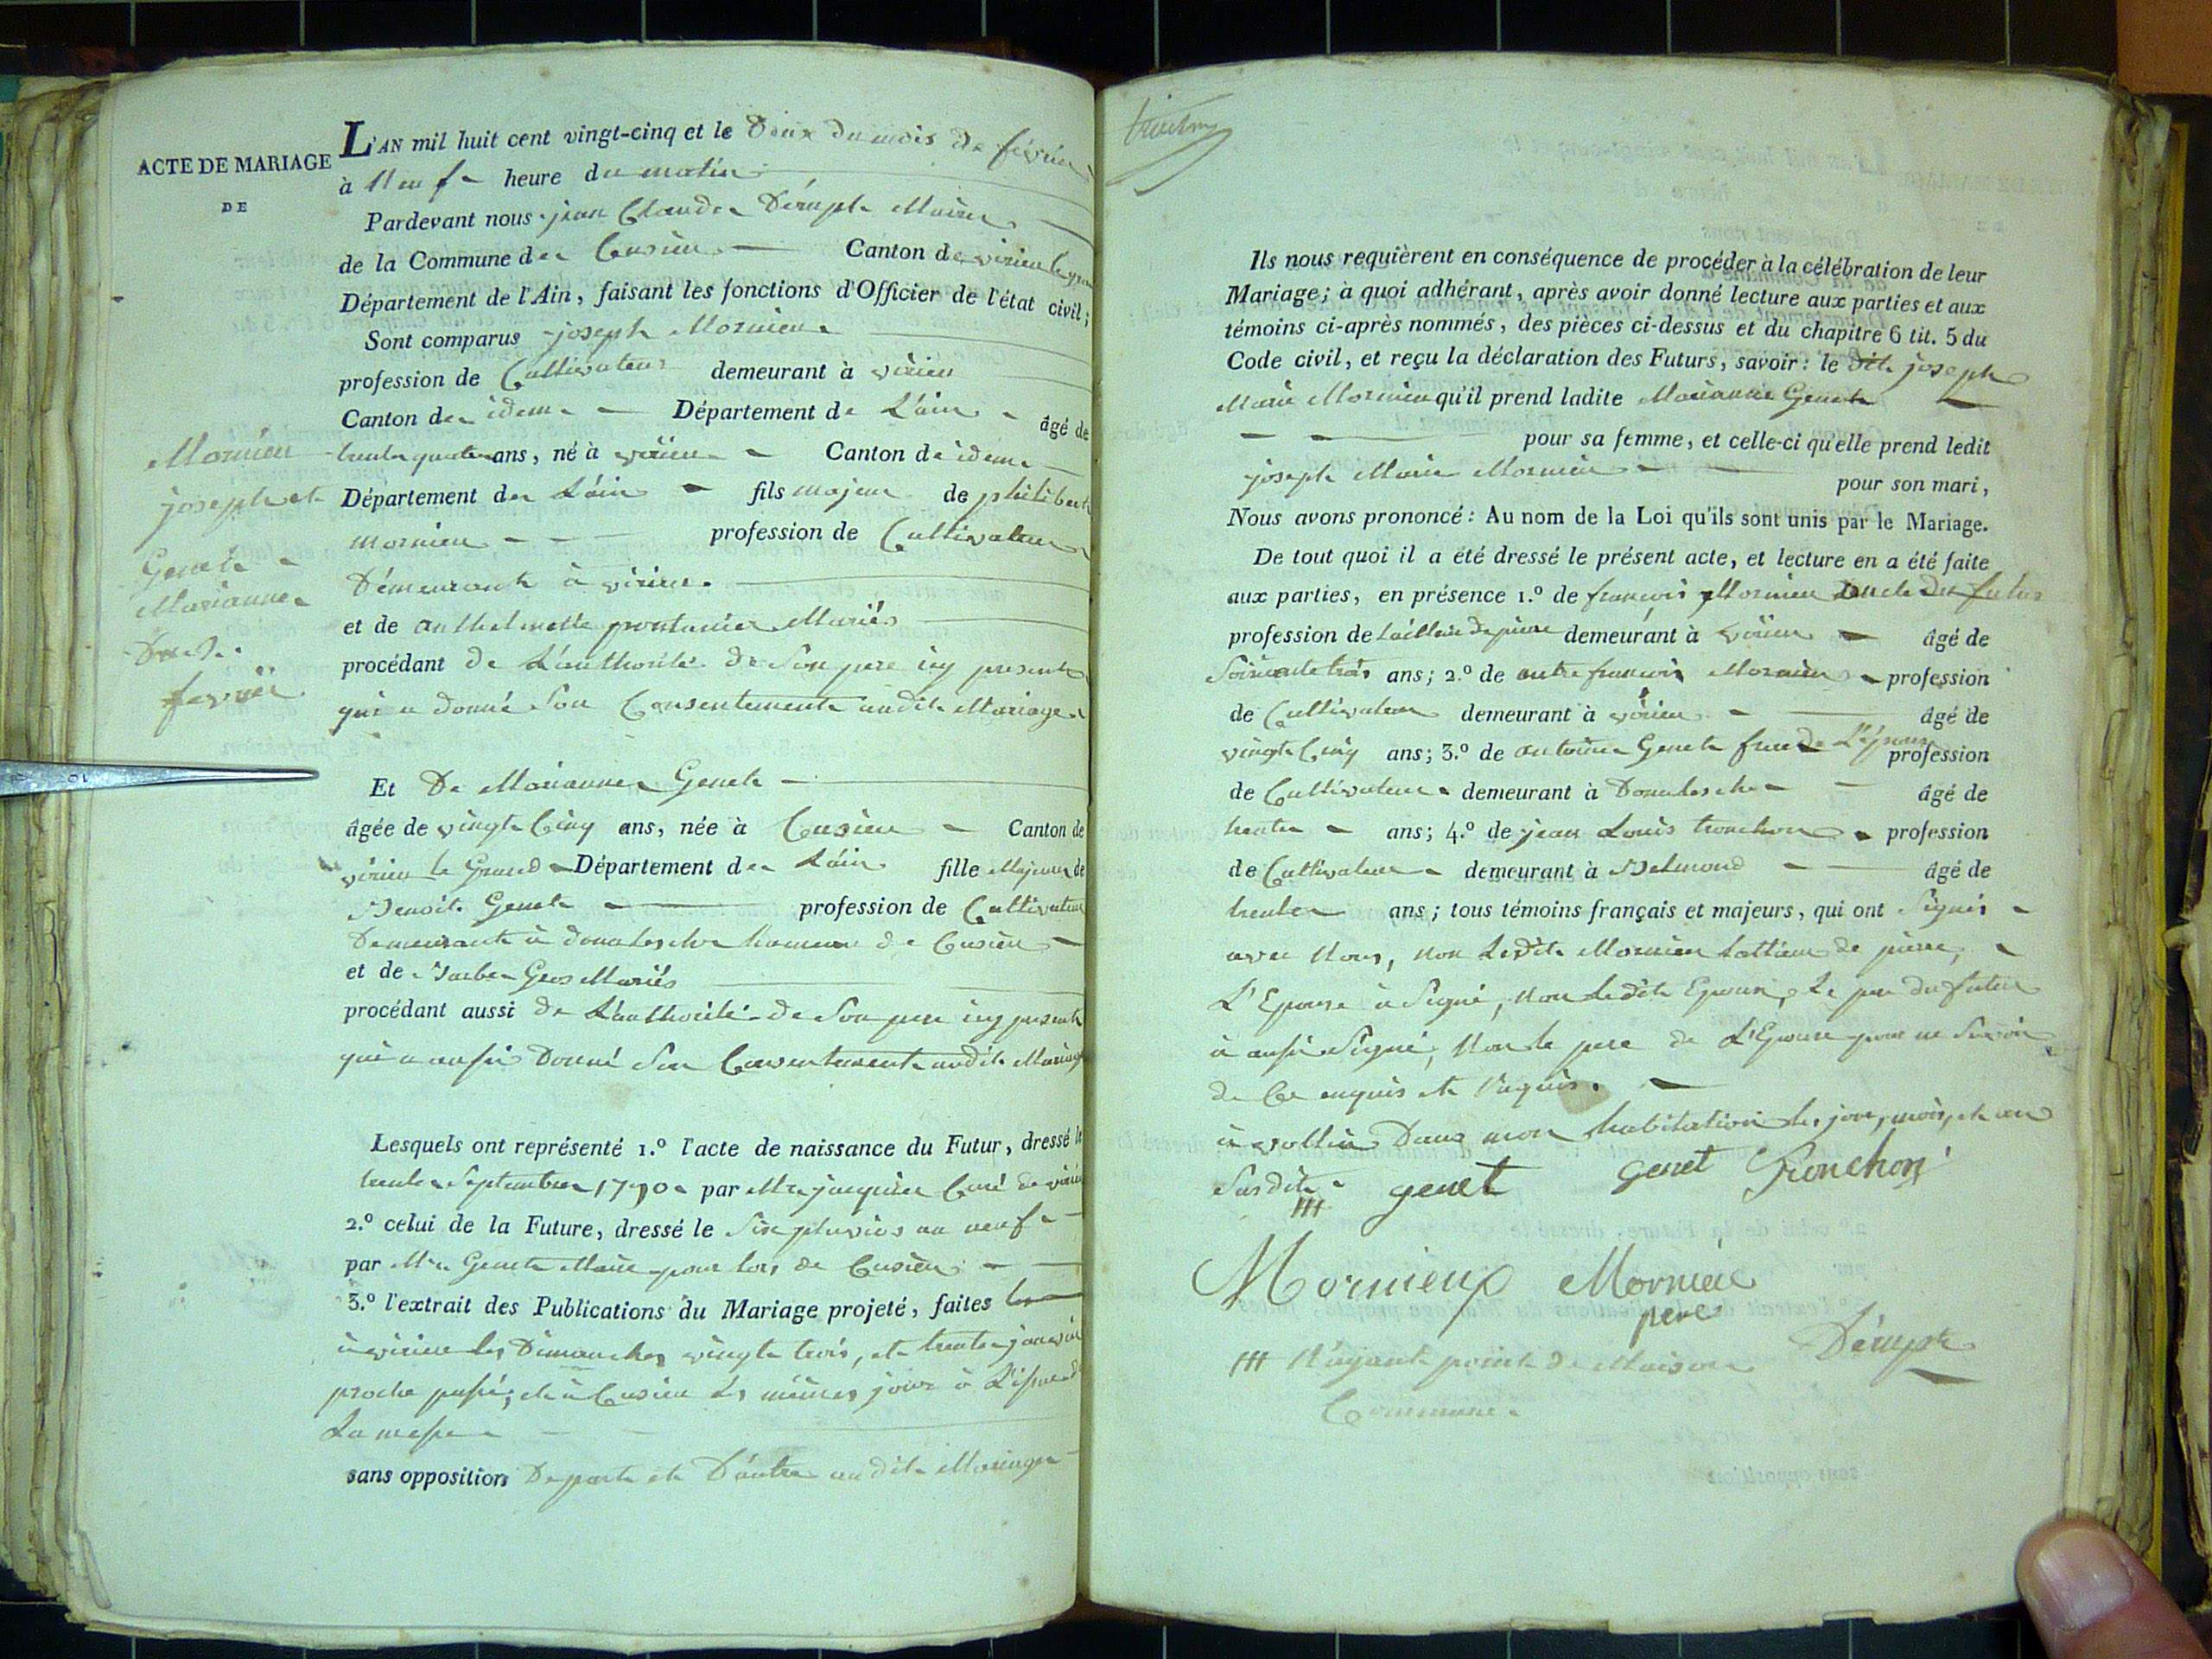 ACTE DE MARIAGE
DE
Mornieu
joseph et
Genet
Marianne
Du 2
fevrier
L'AN mil huit cent vingt-cinq et le Deux du mois de février
à Neuf heure du matin
Pardevant nous jean Claude Dérupt Maire
de la Commune de Cusieu Canton de virieu le grand
Département de l'Ain, faisant les fonctions d'Officier de l'état civil;
Sont comparus joseph Mornieu
profession de Cultivateur demeurant à virieu
Canton de idem Département de L'ain âgé de
trente quatre ans, né à virieu Canton de idem
Département de L'ain fils majeur de philibert
mornieu profession de Cultivateur
Démeurant à virieu.
et de anthelmette Mariés
procédant de L'authorité de Son pere icy present
qui a donné Son Consentement audit Mariage
Et De Marianne Genet
âgée de vingt Cinq ans, née à Cusieu Canton de
virieu le Grand Département de L'ain fille Majeure de
Benoit Genet profession de Cultivateur
Demeurant à hameau de Cusieu
et de Gros Mariés
procédant aussi de L'authorité de Son pere icy present
qui a aussi Donné Son Consentement audit Mariage
Lesquels ont représenté 1.º l'acte de naissance du Futur, dressé le
trente Septembre 1790 par Mre jacquier Curé de virieu
2.º celui de la Future, dressé le Six pluvios an neuf
par Mr Genet Maire pour lors de Cusieu
3.º l'extrait des Publications du Mariage projeté, faites
à virieu les Dimanches vingt trois, et trente janvier
proche passé, et à Cusieu les mêmes jours à L'issue de
La messe
sans opposition De part et D'autre audit Mariage
Ils nous requièrent en conséquence de procéder à la célébration de leur
Mariage; à quoi adhérant, après avoir donné lecture aux parties et aux
témoins ci-après nommés, des pièces ci-dessus et du chapitre 6 tit. 5 du
Code civil, et reçu la déclaration des Futurs, savoir: le dit joseph
Marie Mornieu qu'il prend ladite Marianne Genet
pour sa femme, et celle-ci qu'elle prend ledit
joseph Marie Mornieu pour son mari,
Nous avons prononcé: Au nom de la Loi qu'ils sont unis par le Mariage.
De tout quoi il a été dressé le présent acte, et lecture en a été faite
aux parties, en présence 1.º de françois Mornieu oncle du futur
profession de tailleur de pierre demeurant à virieu âgé de
Soixante trois ans; 2.º de autre françois Mornieu profession
de Cultivateur demeurant à virieu âgé de
vingt Cinq ans; 3.º de antoine Genet frere de L'épouse profession
de Cultivateur demeurant à âgé de
trente ans; 4.º de jean Louis tronchon profession
de Cultivateur demeurant à Belmond âgé de
trente ans; tous témoins français et majeurs, qui ont Signés
avec Nous, Non Ledit Mornieu tallieur de pierre,
L'Epouse à Signé, Non Ledit Epoux, Le pere du futur
à aussi Signé, Non le pere de L'Epouse pour ne Savoir
de Ce enquis et Requis.
à vollien Dans mon habitation les jour, mois, et an
Susdit
genet genet Tronchon
Mornieux Mornieu
pere
Dérupt
N'ayant point de Maison
Commune.